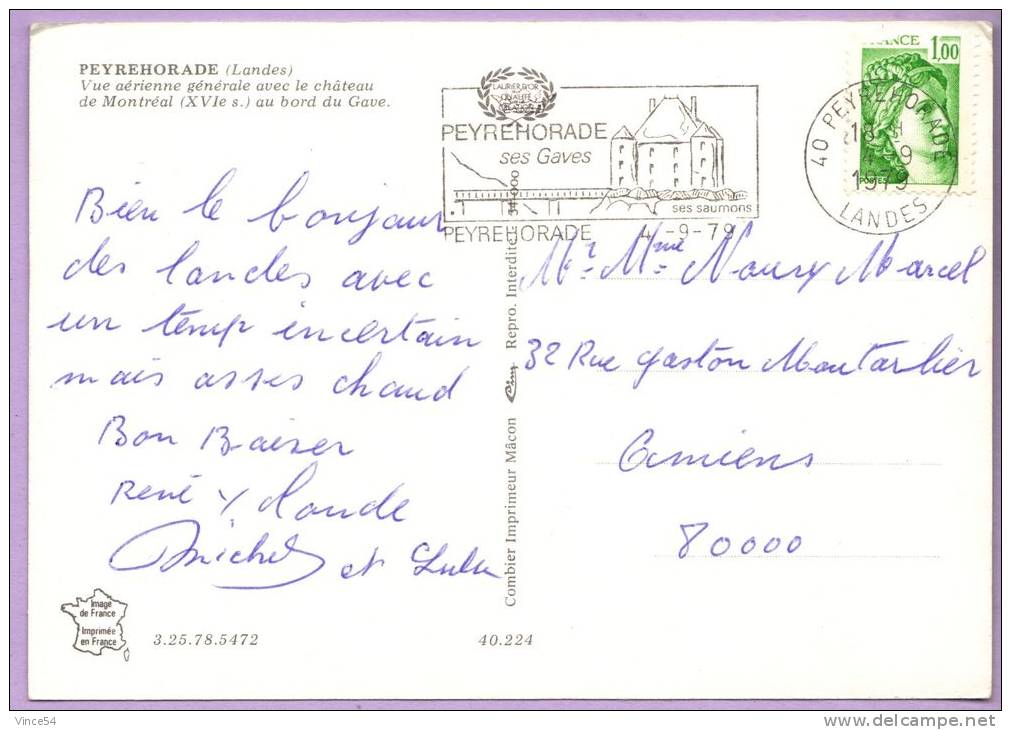 PEYREHORADE (Landes)
Vue aérienne générale avec le château
de Montréal (XVIe s.) au bord du Gave.
Bien le bonjour
des landes avec
un temp incertain
mais asses chaud
Bon Baiser
René Y Claude
Michel et Lulu
Image
de France
Imprimée
en France
3.25.78.5472
40.224
Combier Imprimeur Mâcon Cim Repro. Interdite 34 000
LAURIER D'OR
QUALITÉ
PEYREHORADE
ses Gaves
ses saumons
PEYREHORADE 4-9-79
FRANCE 1,00
POSTES
40 PEYREHORADE
18 H
4-9
1979
LANDES
Mr Mme Marcel
32 Rue gaston Montarlier
Amiens
80000
Vince54
http://www.delcampe.net